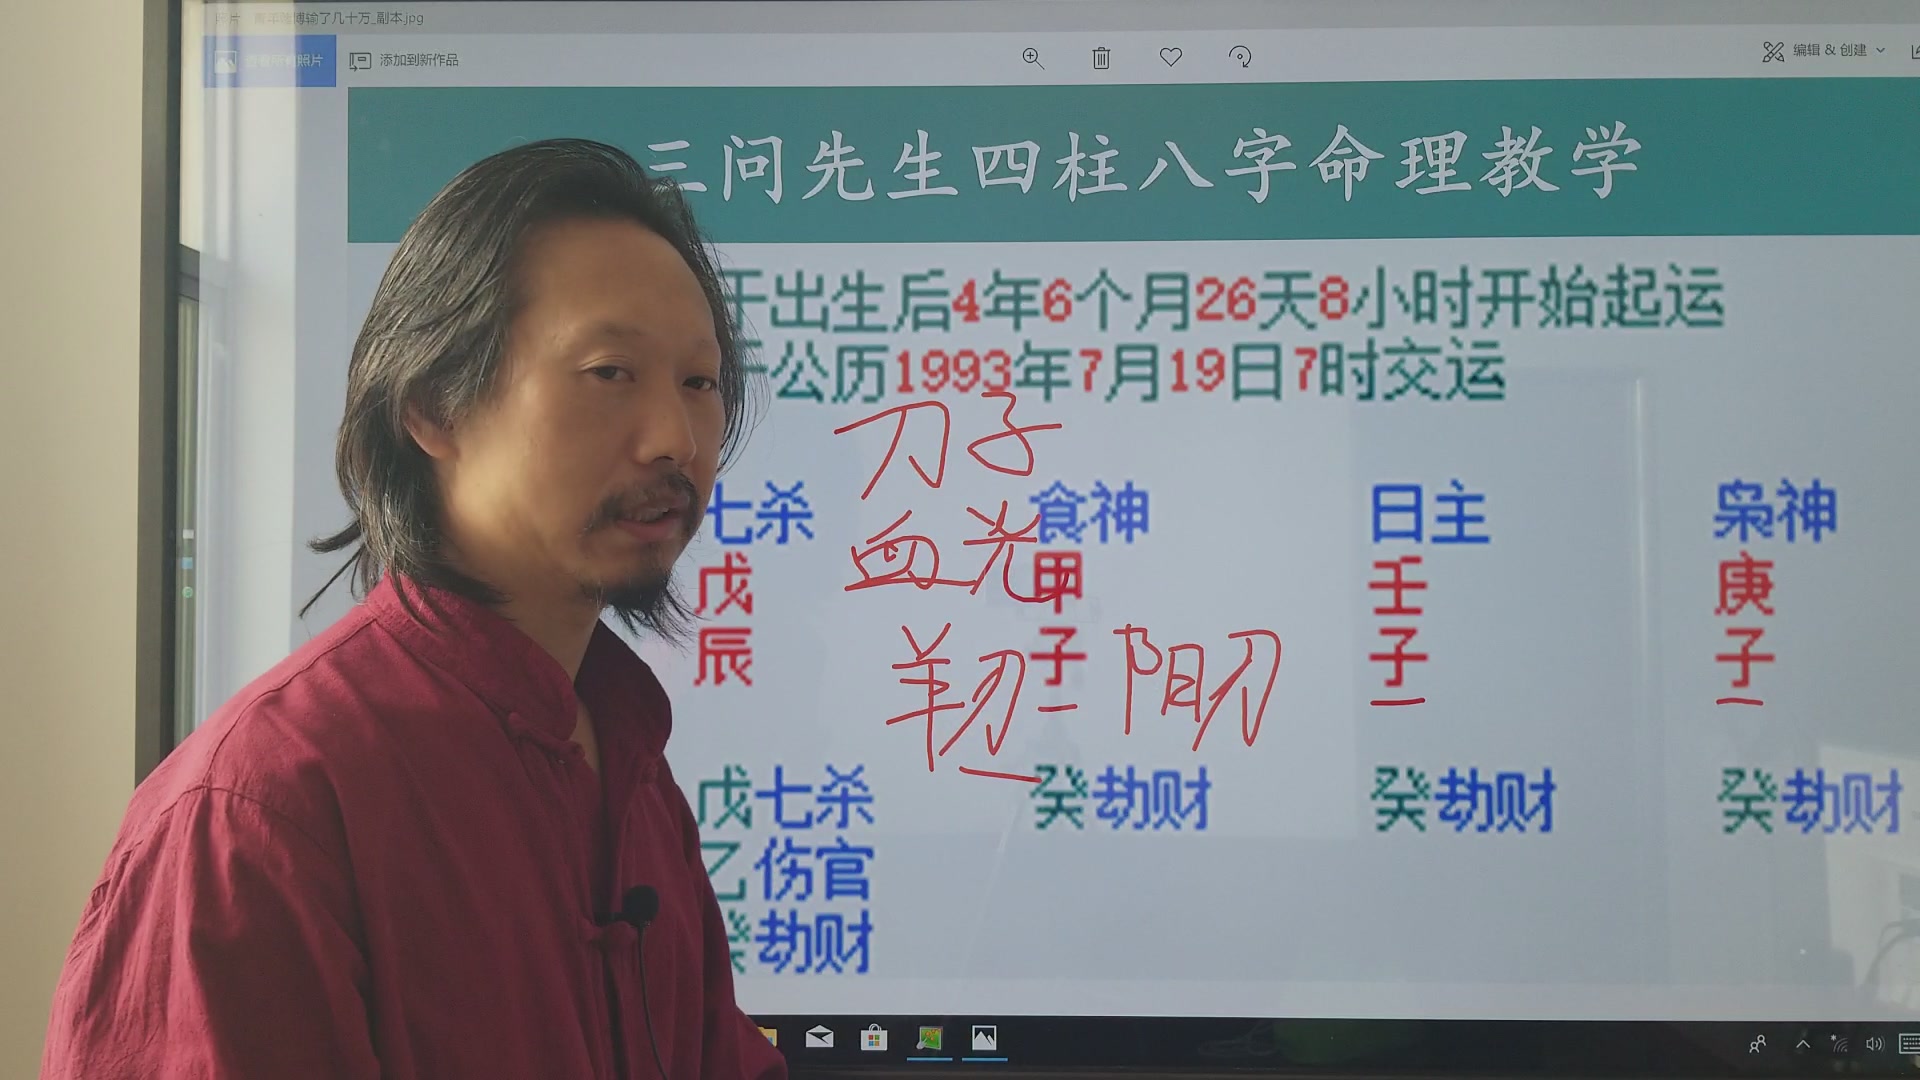 照片 - 青年赌博输了几十万_副本.jpg
查看所有照片 添加到新作品 编辑 & 创建
三问先生四柱八字命理教学
于出生后4年6个月26天8小时开始起运
于公历1993年7月19日7时交运
刀子
七杀 食神 日主 枭神
血光
戊 甲 壬 庚
辰 子 子 子
羊刃 阳刃
戊七杀 癸劫财 癸劫财 癸劫财
乙伤官
癸劫财